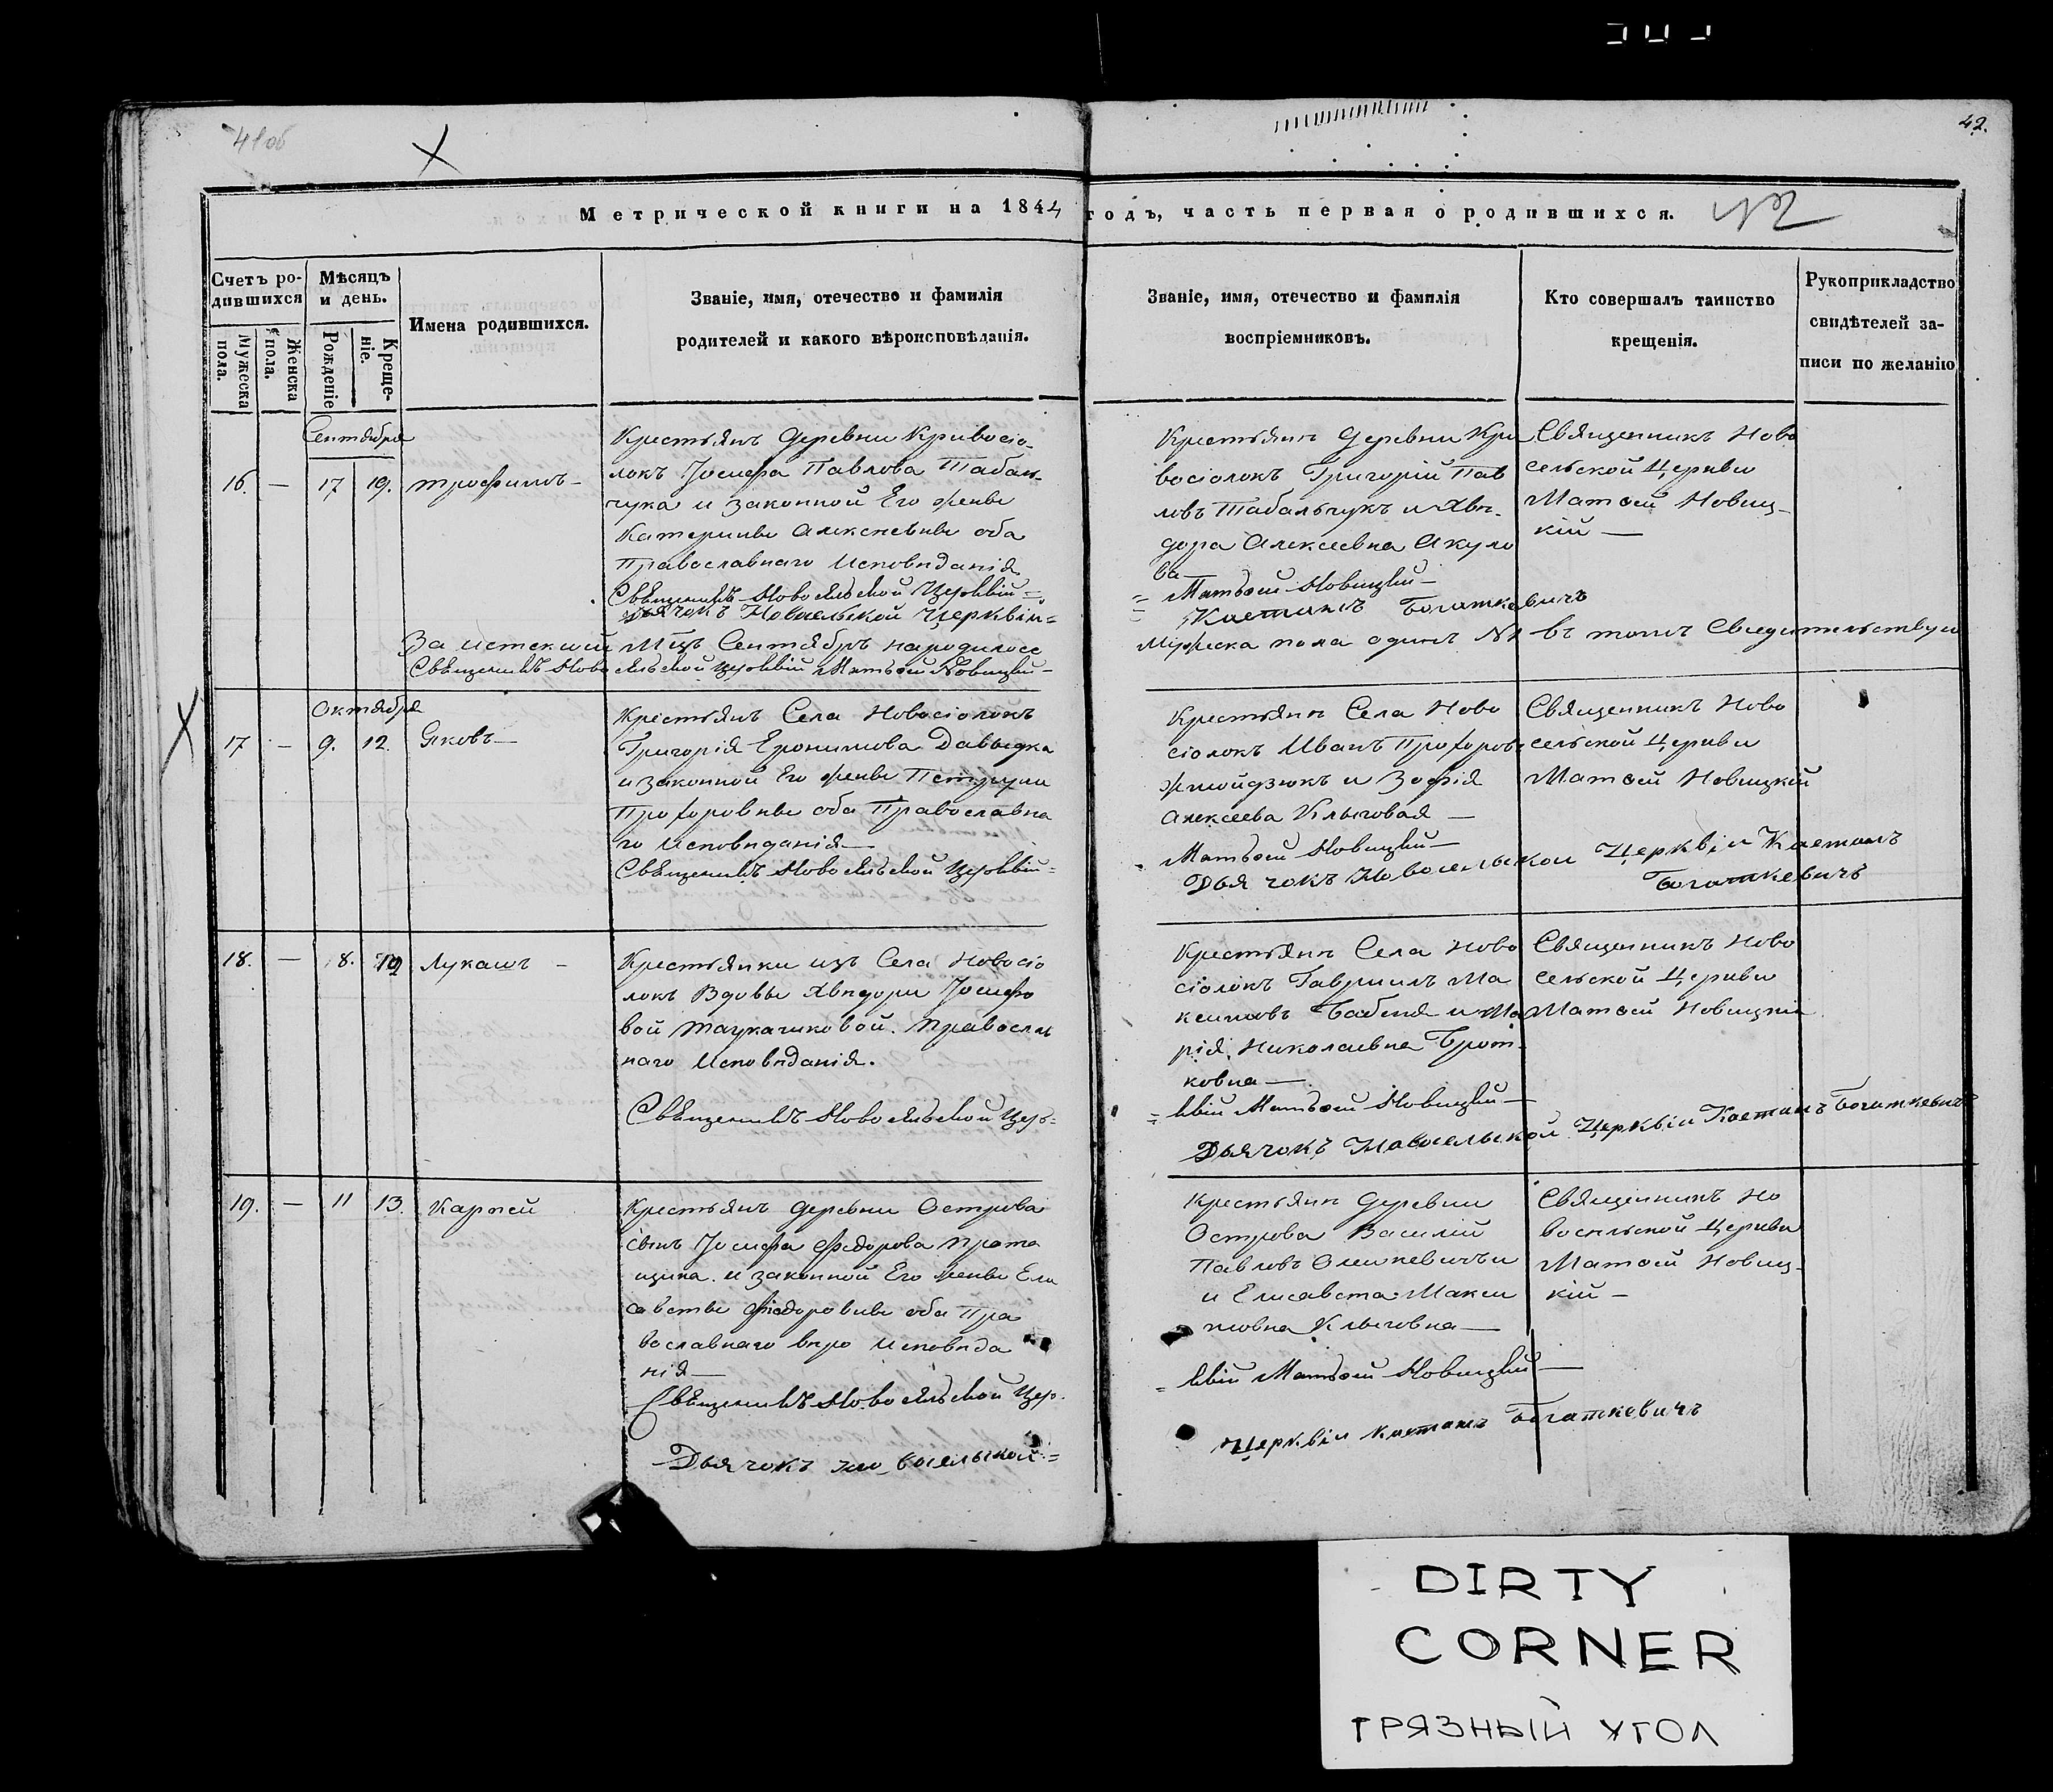 41об
42.
Метрической книги на 1844 годъ, часть первая о родившихся.
42
Счетъ родившихся
Мужеска пола.
Женска пола.
Мѣсяцъ и день.
Рожденіе
Крещеніе.
Имена родившихся.
Званіе, имя, отечество и фамилія
родителей и какого вѣроисповѣданія.
Званіе, имя, отечество и фамилія
воспріемниковъ.
Кто совершалъ таинство
крещенія.
Рукоприкладство
свидѣтелей за-
писи по желанію
Сентября
16. — 17 19. Трофимъ —
Крестьянъ Деревни Кривосіо-
локъ Іосифа Павлова Табаль-
чука и законной Его жены
Катерины Алексеевны оба
Православнаго Исповѣданія
Священникъ Новосельской Церквій =
Дьячокъ Новосельской Церквіи =
Крестьянинъ Деревни Кри
восіолокъ Григорій Пав
ловъ Табальчукъ и Хве-
дора Алексеевна Акуло
ва —
= Матѳей Новицкій —
= Каетанъ Богаткевичъ
Священникъ Ново
сельской Церкви
Матѳей Новиц-
кій —
За истекший Мцъ Сентябръ народилосе
Мужеска пола одинъ №1 въ томъ Свидительствуи
Священникъ Новосельской Церквій Матѳей Новицкій —
Октября
17 — 9. 12. Яковъ —
Крестьянъ Села Новосіолокъ
Григорія Еронимова Давыдка
и законной Его жены Петрули
Прохоровны оба Православна
го Исповѣданія —
Священникъ Новосельской Церквій =
Крестьянинъ Села Ново
сіолокъ Иванъ Прохоровъ
Жмойдзюкъ и Зофія
Алексеева Клыговая —
Матѳей Новицкій —
Дьячокъ Новосельской Церквіи Каетанъ
Богаткевичъ
Священникъ Ново
сельской Церкви
Матѳей Новицкій
18. — 8. Лукашъ —
Крестьянки изъ Села Новосіо
локъ Вдовы Хведоры Іосифо
вой Православ
наго Исповѣданія.
Священникъ Новосельской Цер =
Крестьянинъ Села Ново
сіолокъ Гавріилъ Ма
ксимовъ и Ма
рія Николаевна Брот-
ковна —
= квій Матѳей Новицкій —
Дьячокъ Новосельской Церквіи Каетанъ Богаткевичъ
Священникъ Ново
сельской Церкви
Матѳей Новицкій
19. — 11 13. Карпей
Крестьянъ Деревни Острова
Іосифа Федорова Прота
щика и законной Его жены Ели
саветы Фіодоровны оба Пра
вославнаго веро Исповѣда
нія —
Священникъ Новосельской Цер.
Дьячокъ Новосельской =
Крестьянинъ Деревни
Острова Василій
Павловъ Олешкевичъ и
и Елисавета Макси
мовна Клыговна —
= квій Матѳей Новицкій —
Церквіи Каетанъ Богаткевичъ
Священникъ Но
восельской Церкви
Матѳей Новиц-
кій —
DIRTY
CORNER
ГРЯЗНЫЙ УГОЛ